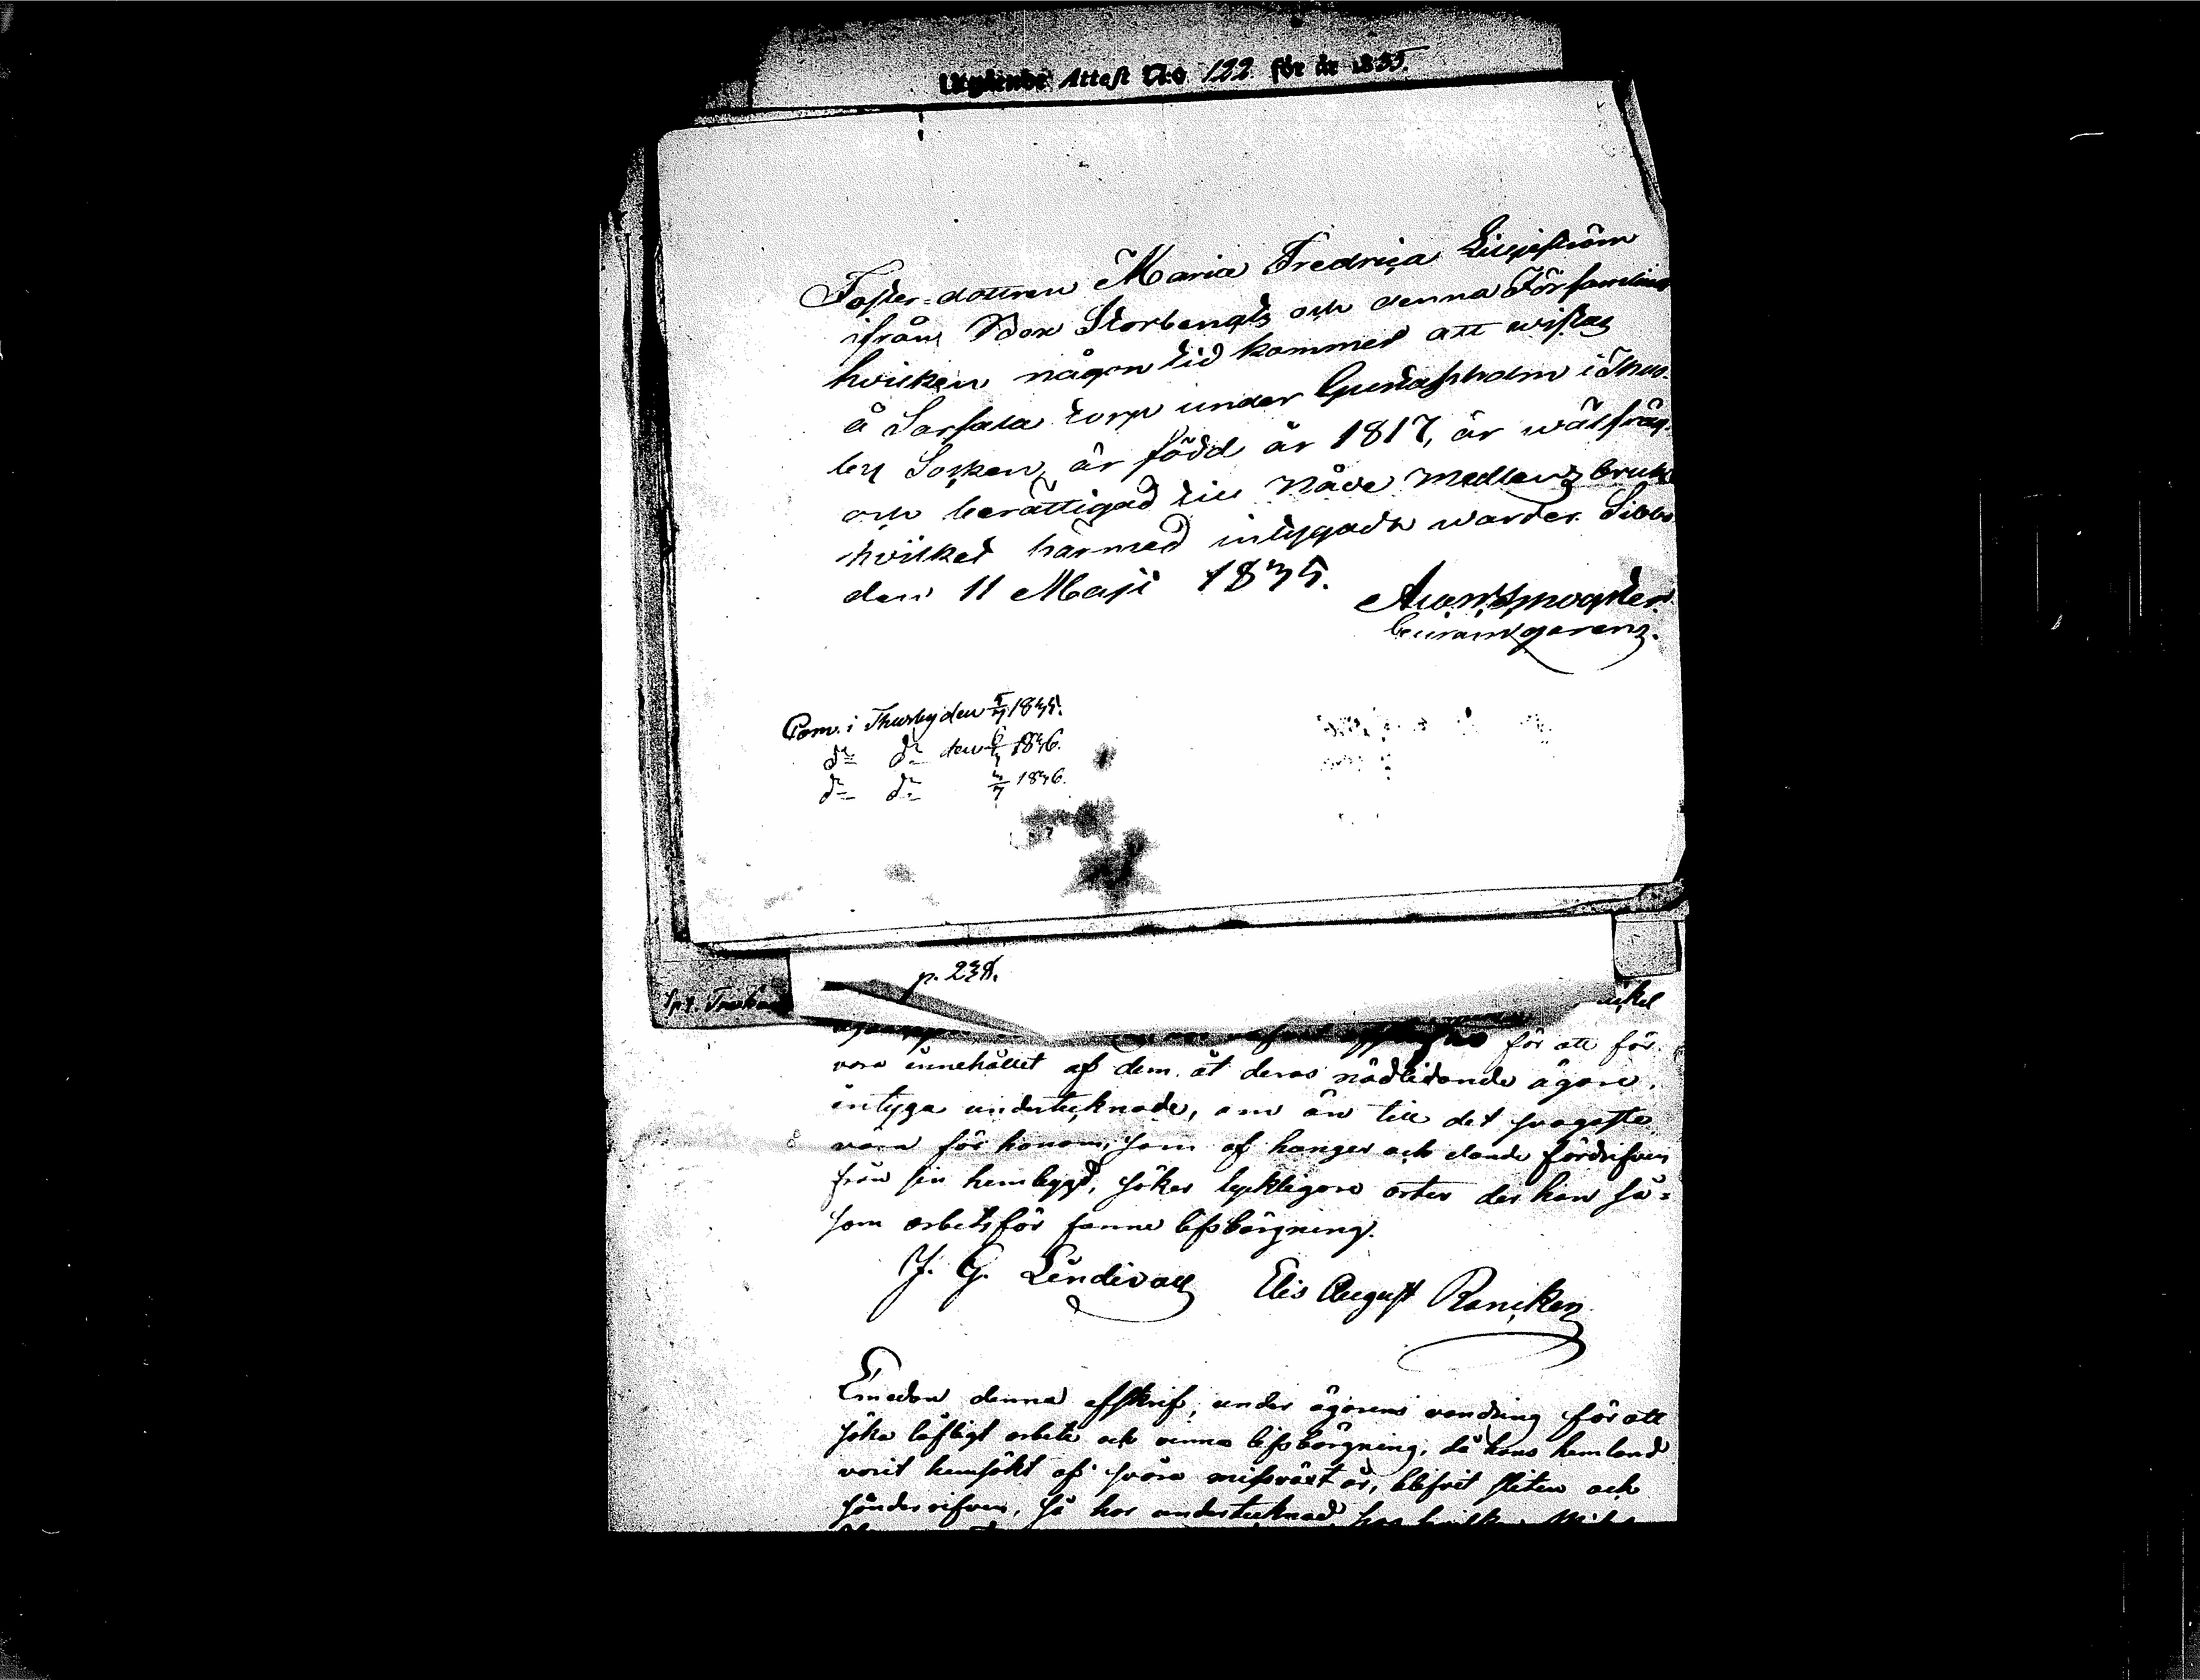 Utgående Attest N:o 122 för år 1835.
Foster-dottren Maria Fredrica Liljeström
ifrån Box Storbengts och denna Församling
hvilken någon tid kommer att wistas
å Sarsala torp under Gustafsholm i Thus-
by Socken, är född år 1817, är wälfräg.
och berättigad till Nåde medlens bruk
hvilket härmed intygadt warder. Sibbo
den 11 Maji 1835.
Com. i Thusby den 5/7 1835.
d:o d:o den 1836.
d:o d:o 3/7 1836.
p. 238.
för att för
vara innehållet af dem åt deras nödlidande ägare.
intyga undertecknade, om än till det svagaste
värn för honom, som af hunger och elände fördrifven
från sin hembygd, söker lyckligare orter der han så-
som arbetsför funne lifsbärgning.
J. G. Lindevall Elis August Rancken
Emedan denna afskrift, under ägarens vandring för att
söka lofligt arbete och vinna lifsbärgning, då hans hemland
varit hemsökt af svåra missväxt år, blifvit sliten och
sönderrifven, så har undertecknad